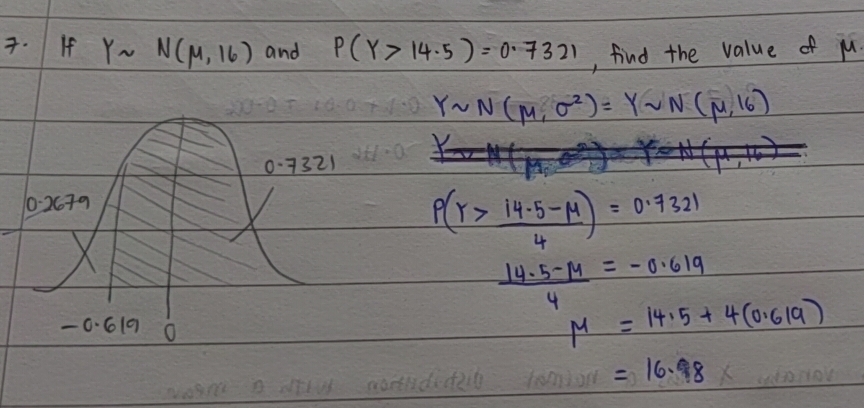 7. If Y~ N(μ, 16) and P(Y > 14.5) = 0.7321, find the value of μ.
Y~N(μ, σ²) = Y~N(μ, 16)
Y~N(μ, σ²) = Y~N(μ, 16)
0.7321
0.2679
P(Y > (14.5-μ)/4) = 0.7321
(14.5-μ)/4 = -0.619
μ = 14.5 + 4(0.619)
= 16.98
-0.619 0